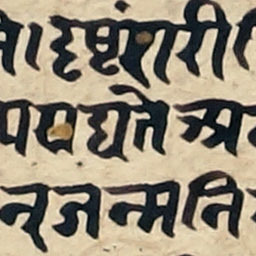 । दृष्टं शरीरि
पपद्यते अ
न् जन्मनि